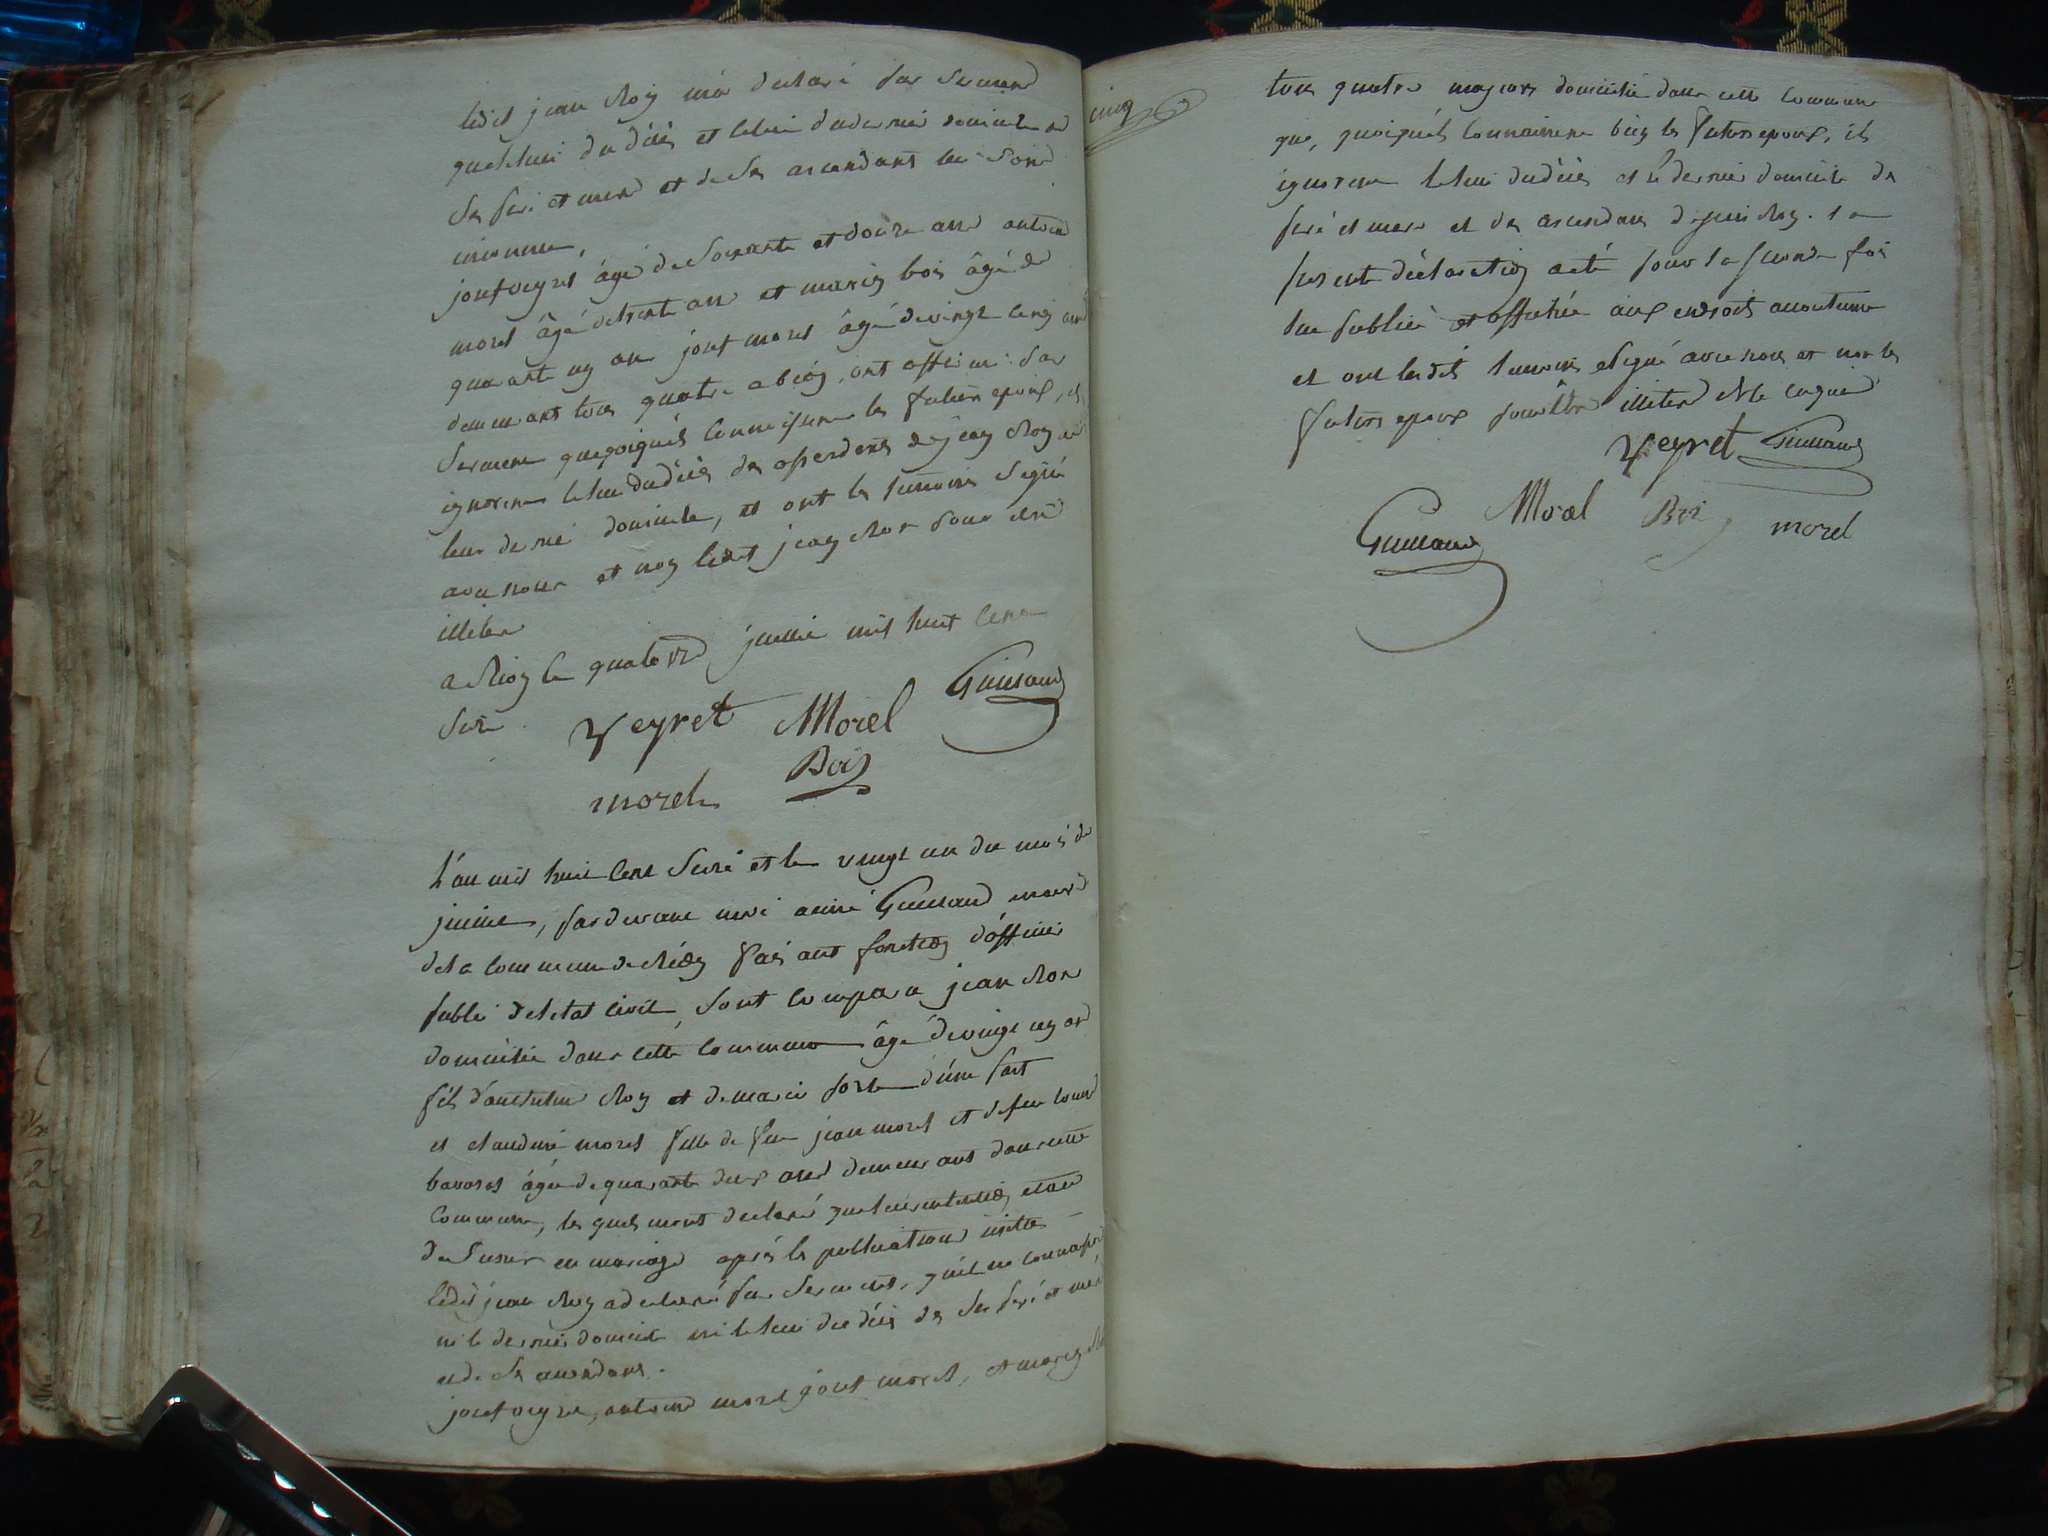 ledit jean Roy m'a declaré par serment
que le lieu du décès et celui du dernié domicile de
ses pere et mere et de ses ascendants lui sont
inconnue,
josef veyret âgé de soixante et douze ans antoine
morel âgé de trente ans et marin bois âgé de
quarant un ans josef morel âgé de vingt cinq ans
demeurant tous quatre a , ont affirmé par
serment que quoiqu'ils connoissent les futurs epoux, ils
ignorent le lieu du décès des assendents de jean Roy et
leur dernié domicile, et ont les temoins signé
avec nous et non ledit jean Roy pour etre
illiteré
a le quatorze juillié mil huit cent
seize
Veyret Morel Guillaud
Bois
morel
L'an mil huit cent seize et le vingt un du mois de
juillet, pardevant moi aimé Guillaud maire
de la commune de faisant fonction d'officié
public de l'etat civil, sont comparu jean Roy
domicilié dans cette commune âgé de vingt un ans
fils d'anthelme Roy et de marie d'une part
et claudine morel fille de feu jean morel et de feu
âgée de quarante deux ans demeurant dans cette
commune, les quels m'ont declaré que leur intention etoit
de s'unir en mariage après les publications
ledit jean Roy a declaré par serment, qu'il ne connoissoit
ni le dernié domicile ni le lieu du décès de ses peré et meré
et de ses ascendans.
josef veyret, antoine morel josef morel, et marin
cinq
tous quatre majeurs domicilié dans cette commune
que, quoiqu'ils connoissent bien les futurs epoux, ils
ignorent le lieu du décès et le dernié domicile des
peré et mere et des ascendans de jean Roy. la
presente déclaration a eté pour la seconde fois
lue publiée et affichée aux endroits accoutumé
et ont lesdits temoins signé avec nous et non les
futurs epoux pour être illiteré de ce enquis
Veyret Guillaud
Guillaud Morel Bois morel